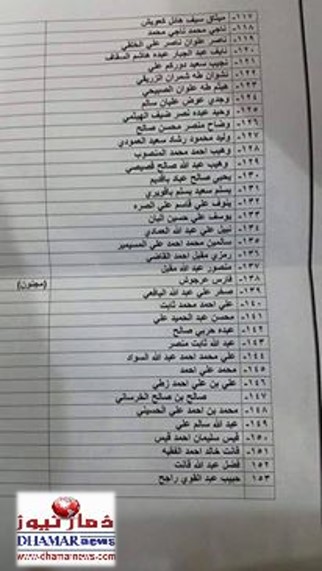 ١١٧- ميثاق سيف هائل كعويش
١١٨- ناجي محمد ناجي محمد
١١٩- ناصر علوان ناصر علي الخلقي
١٢٠- نايف عبد الجبار عبده هاشم السقاف
١٢١- نجيب سعيد دوركم علي
١٢٢- نشوان طه شمران الزريقي
١٢٣- هيثم طه علوان الصبيحي
١٢٤- وجدي عوض عليان سالم
١٢٥- وحيد عبده نصر ضيف الهيثمي
١٢٦- وضاح منصر محسن صالح
١٢٧- وليد محمود رشاد سعيد العمودي
١٢٨- وهيب احمد محمد المنصوب
١٢٩- وهيب عبد الله صالح
١٣٠- يحيى صالح عباد باقديم
١٣١- يسلم سعيد يسلم باقويري
١٣٢- ينوف علي قاسم علي الصره
١٣٣- يوسف علي حسين البان
١٣٤- نبيل علي عبد الله العمادي
١٣٥- سالمين محمد احمد علي المسيمير
١٣٦- رمزي مقبل احمد القاضي
١٣٧- منصور عبد الله مقبل
١٣٨- فارس عرجوش (مجنون)
١٣٩- صقر علي عبد الله اليافعي
١٤٠- علي احمد محمد ثابت
١٤١- محسن عبد الحميد علي
١٤٢- عبده حربي صالح
١٤٣- عبد الله ثابت منصر
١٤٤- علي محمد احمد عبد الله السواد
١٤٥- محمد علي احمد
١٤٦- علي بن علي احمد زطي
١٤٧- صالح بن صالح الخرساني
١٤٨- محمد بن احمد علي الحسيني
١٤٩- عبد الله سالم علي
١٥٠- قيس سليمان احمد قيس
١٥١- قانت خالد احمد الفقيه
١٥٢- فضل عبد الله قانت
١٥٣- حبيب عبد القوي راجح
ذمار نيوز
DHAMARnews
www.dhamarnews.com